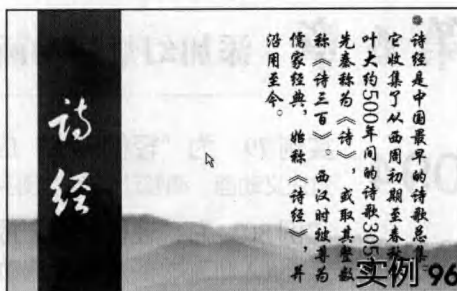 诗经是中国最早的诗歌总集。
它收集了从西周初期至春秋
叶大约500年间的诗歌305
先秦称为《诗》，或取其整数
称《诗三百》。西汉时被尊为
儒家经典，始称《诗经》，并
沿用至今。
诗经
实例 96